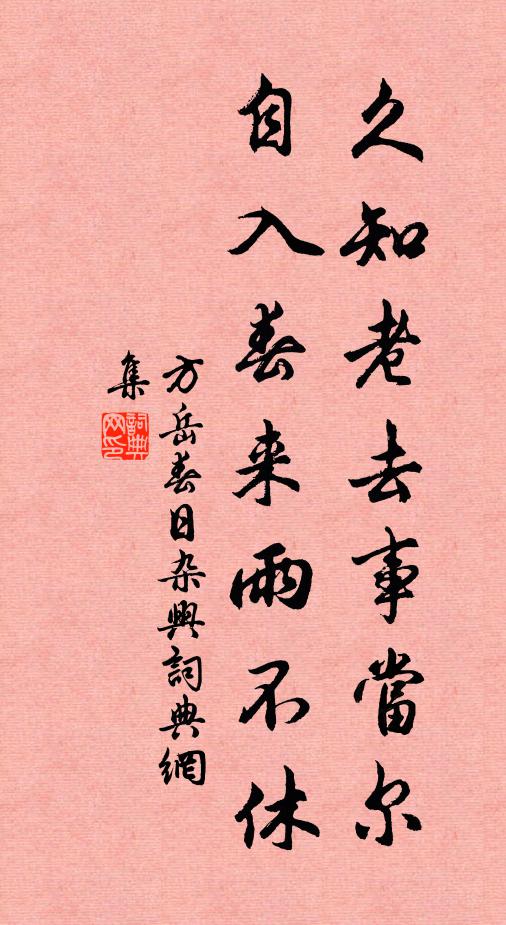 久知老去事當尔
自入春来雨不休
方岳春日杂興詞典網
集
詞典網印